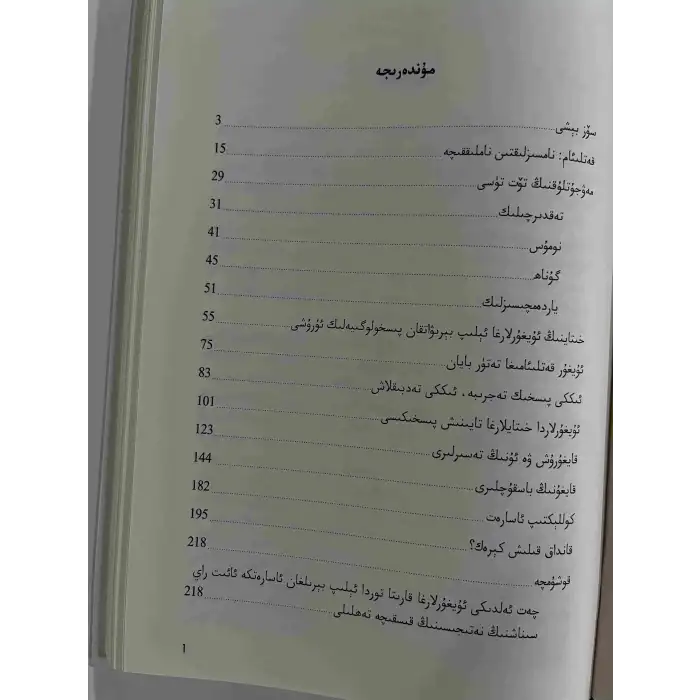 مۇندەرىجە
سۆز بېشى 3
قەتلىئام: نامسىزلىقتىن ناملىققىچە 15
مەۋجۇتلۇقنىڭ تۆت تۈسى 29
تەقدىرچىلىك 31
نومۇس 41
گۇناھ 45
ياردەمچىسىزلىك 51
خىتاينىڭ ئۇيغۇرلارغا ئېلىپ بېرىۋاتقان پىسخولوگىيەلىك ئۇرۇشى 55
ئۇيغۇر قەتلىئامىغا تەتۈر بايان 75
ئىككى پىسخىك تەجرىبە، ئىككى تەدبىقلاش 83
ئۇيغۇرلاردا خىتايلارغا تايىنىش پىسخىكىسى 101
قايغۇرۇش ۋە ئۇنىڭ تەسىرلىرى 123
قايغۇنىڭ باسقۇچلىرى 144
كوللېكتىپ ئاسارەت 182
قانداق قىلىش كېرەك؟ 195
قوشۇمچە 218
چەت ئەلدىكى ئۇيغۇرلارغا قارىتا توردا ئېلىپ بېرىلغان ئاسارەتكە ئائىت راي
سىناشنىڭ نەتىجىسىنىڭ قىسقىچە تەھلىلى 218
1